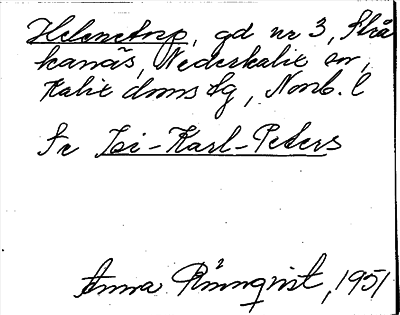 Helenetorp, gd nr 3, Strå
kanäs, Nederkalix sn,
Kalix doms lg, Norrb. l
Se Isi-Karl-Peters
Anna Rönnqvist, 1951